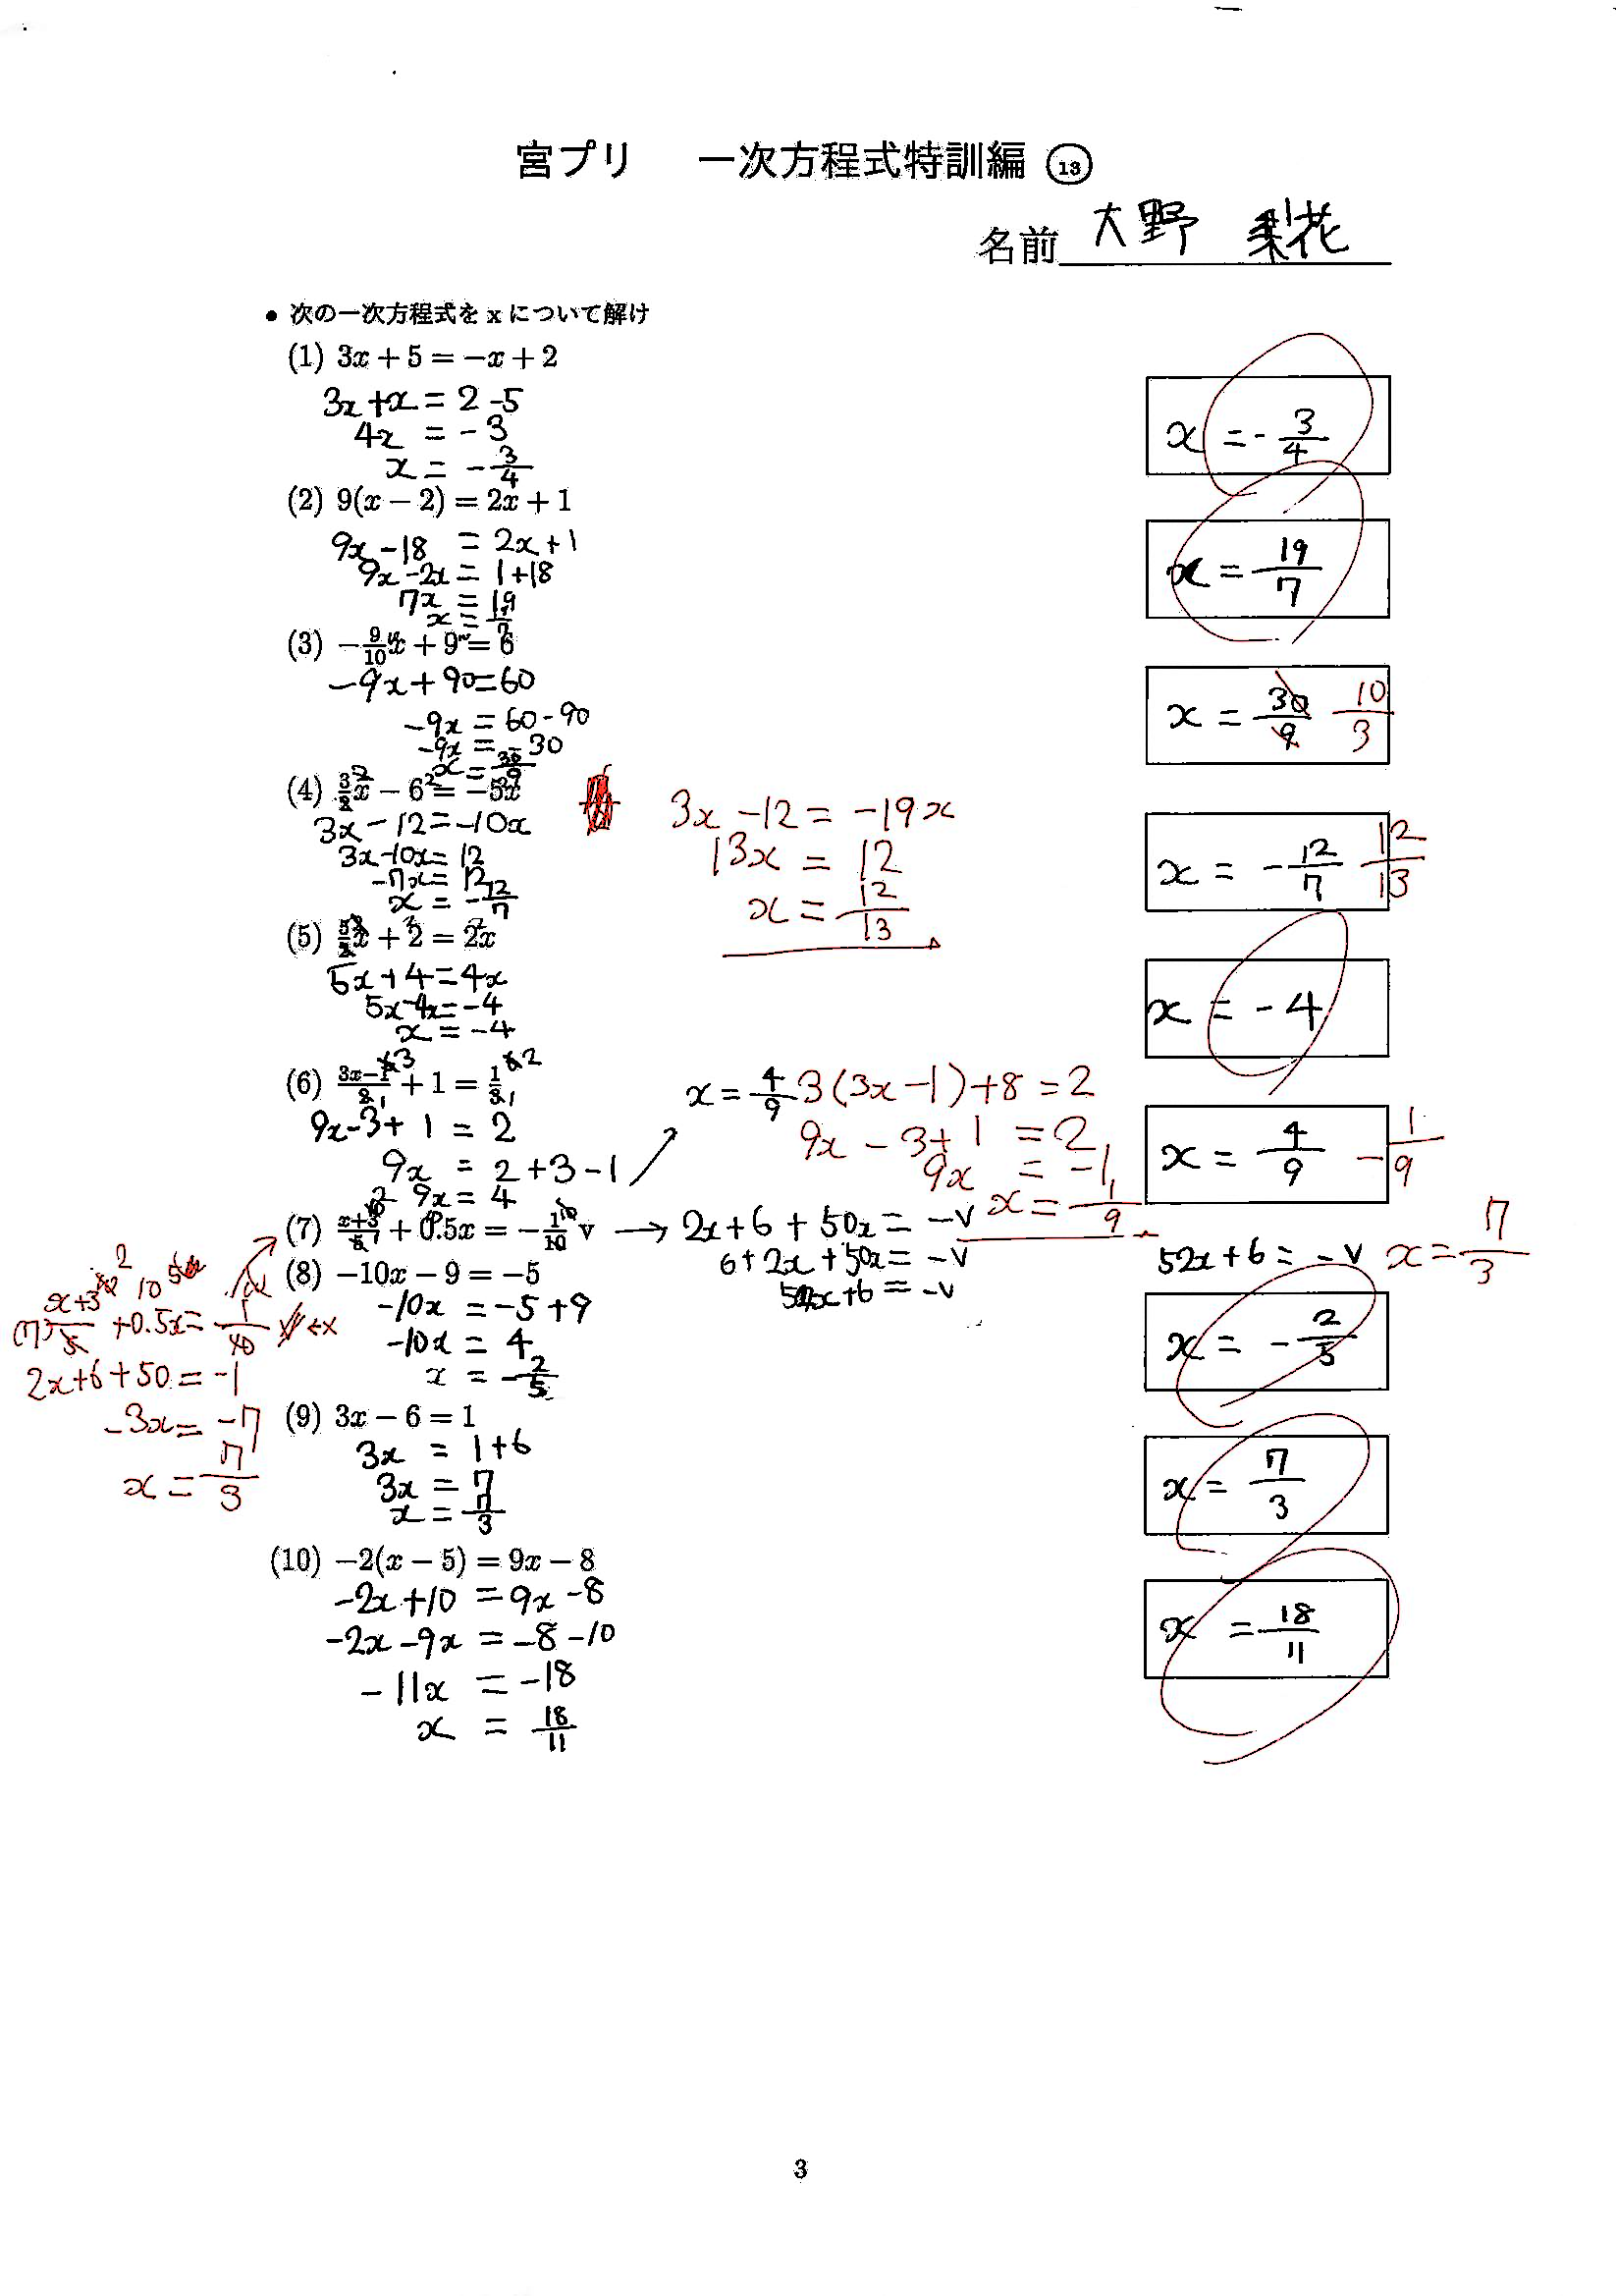 宮プリ 一次方程式特訓編 ⑬
名前 大野 梨花
• 次の一次方程式を x について解け
(1) 3x + 5 = −x + 2
3x+x = 2 -5
4x = -3
x = -3/4
x = -3/4
(2) 9(x − 2) = 2x + 1
9x -18 = 2x+1
9x -2x = 1+18
7x = 19
x = 19/7
x = 19/7
(3) −9/10 x + 9 = 6
-9x + 90=60
-9x = 60-90
-9x = -30
x = 30/9
x = 30/9 10/3
(4) 3/2 x − 6 = −5x
3x-12=-10x
3x-10x=12
-7x=12
x = -12/7
3x -12 = -19x
13x = 12
x = 12/13
x = -12/7 12/13
(5) 5/2 x + 2 = 2x
5x+4=4x
5x-4x=-4
x = -4
x = -4
(6) (3x−1)/2 + 1 = 1/3
9x-3+1 = 2
9x = 2+3-1
9x = 4
x = 4/9
3(3x-1)+8=2
9x-3+1=2
9x = -1
x = 1/9
x = 4/9 -1/9
(7) (x+3)/5 + 0.5x = −1/10 v
→ 2x+6+50x=-v
6+2x+50x=-v
52x+6=-v
52x+6=-v x = 7/3
(7) (x+3)/5 +0.5x= 1/10 ←x
2x+6+50=-1
-3x=-7
x = 7/3
(8) −10x − 9 = −5
-10x = -5+9
-10x = 4
x = -2/5
x = -2/5
(9) 3x − 6 = 1
3x = 1+6
3x = 7
x = 7/3
x = 7/3
(10) −2(x − 5) = 9x − 8
-2x+10 = 9x-8
-2x-9x = -8-10
-11x = -18
x = 18/11
x = 18/11
3